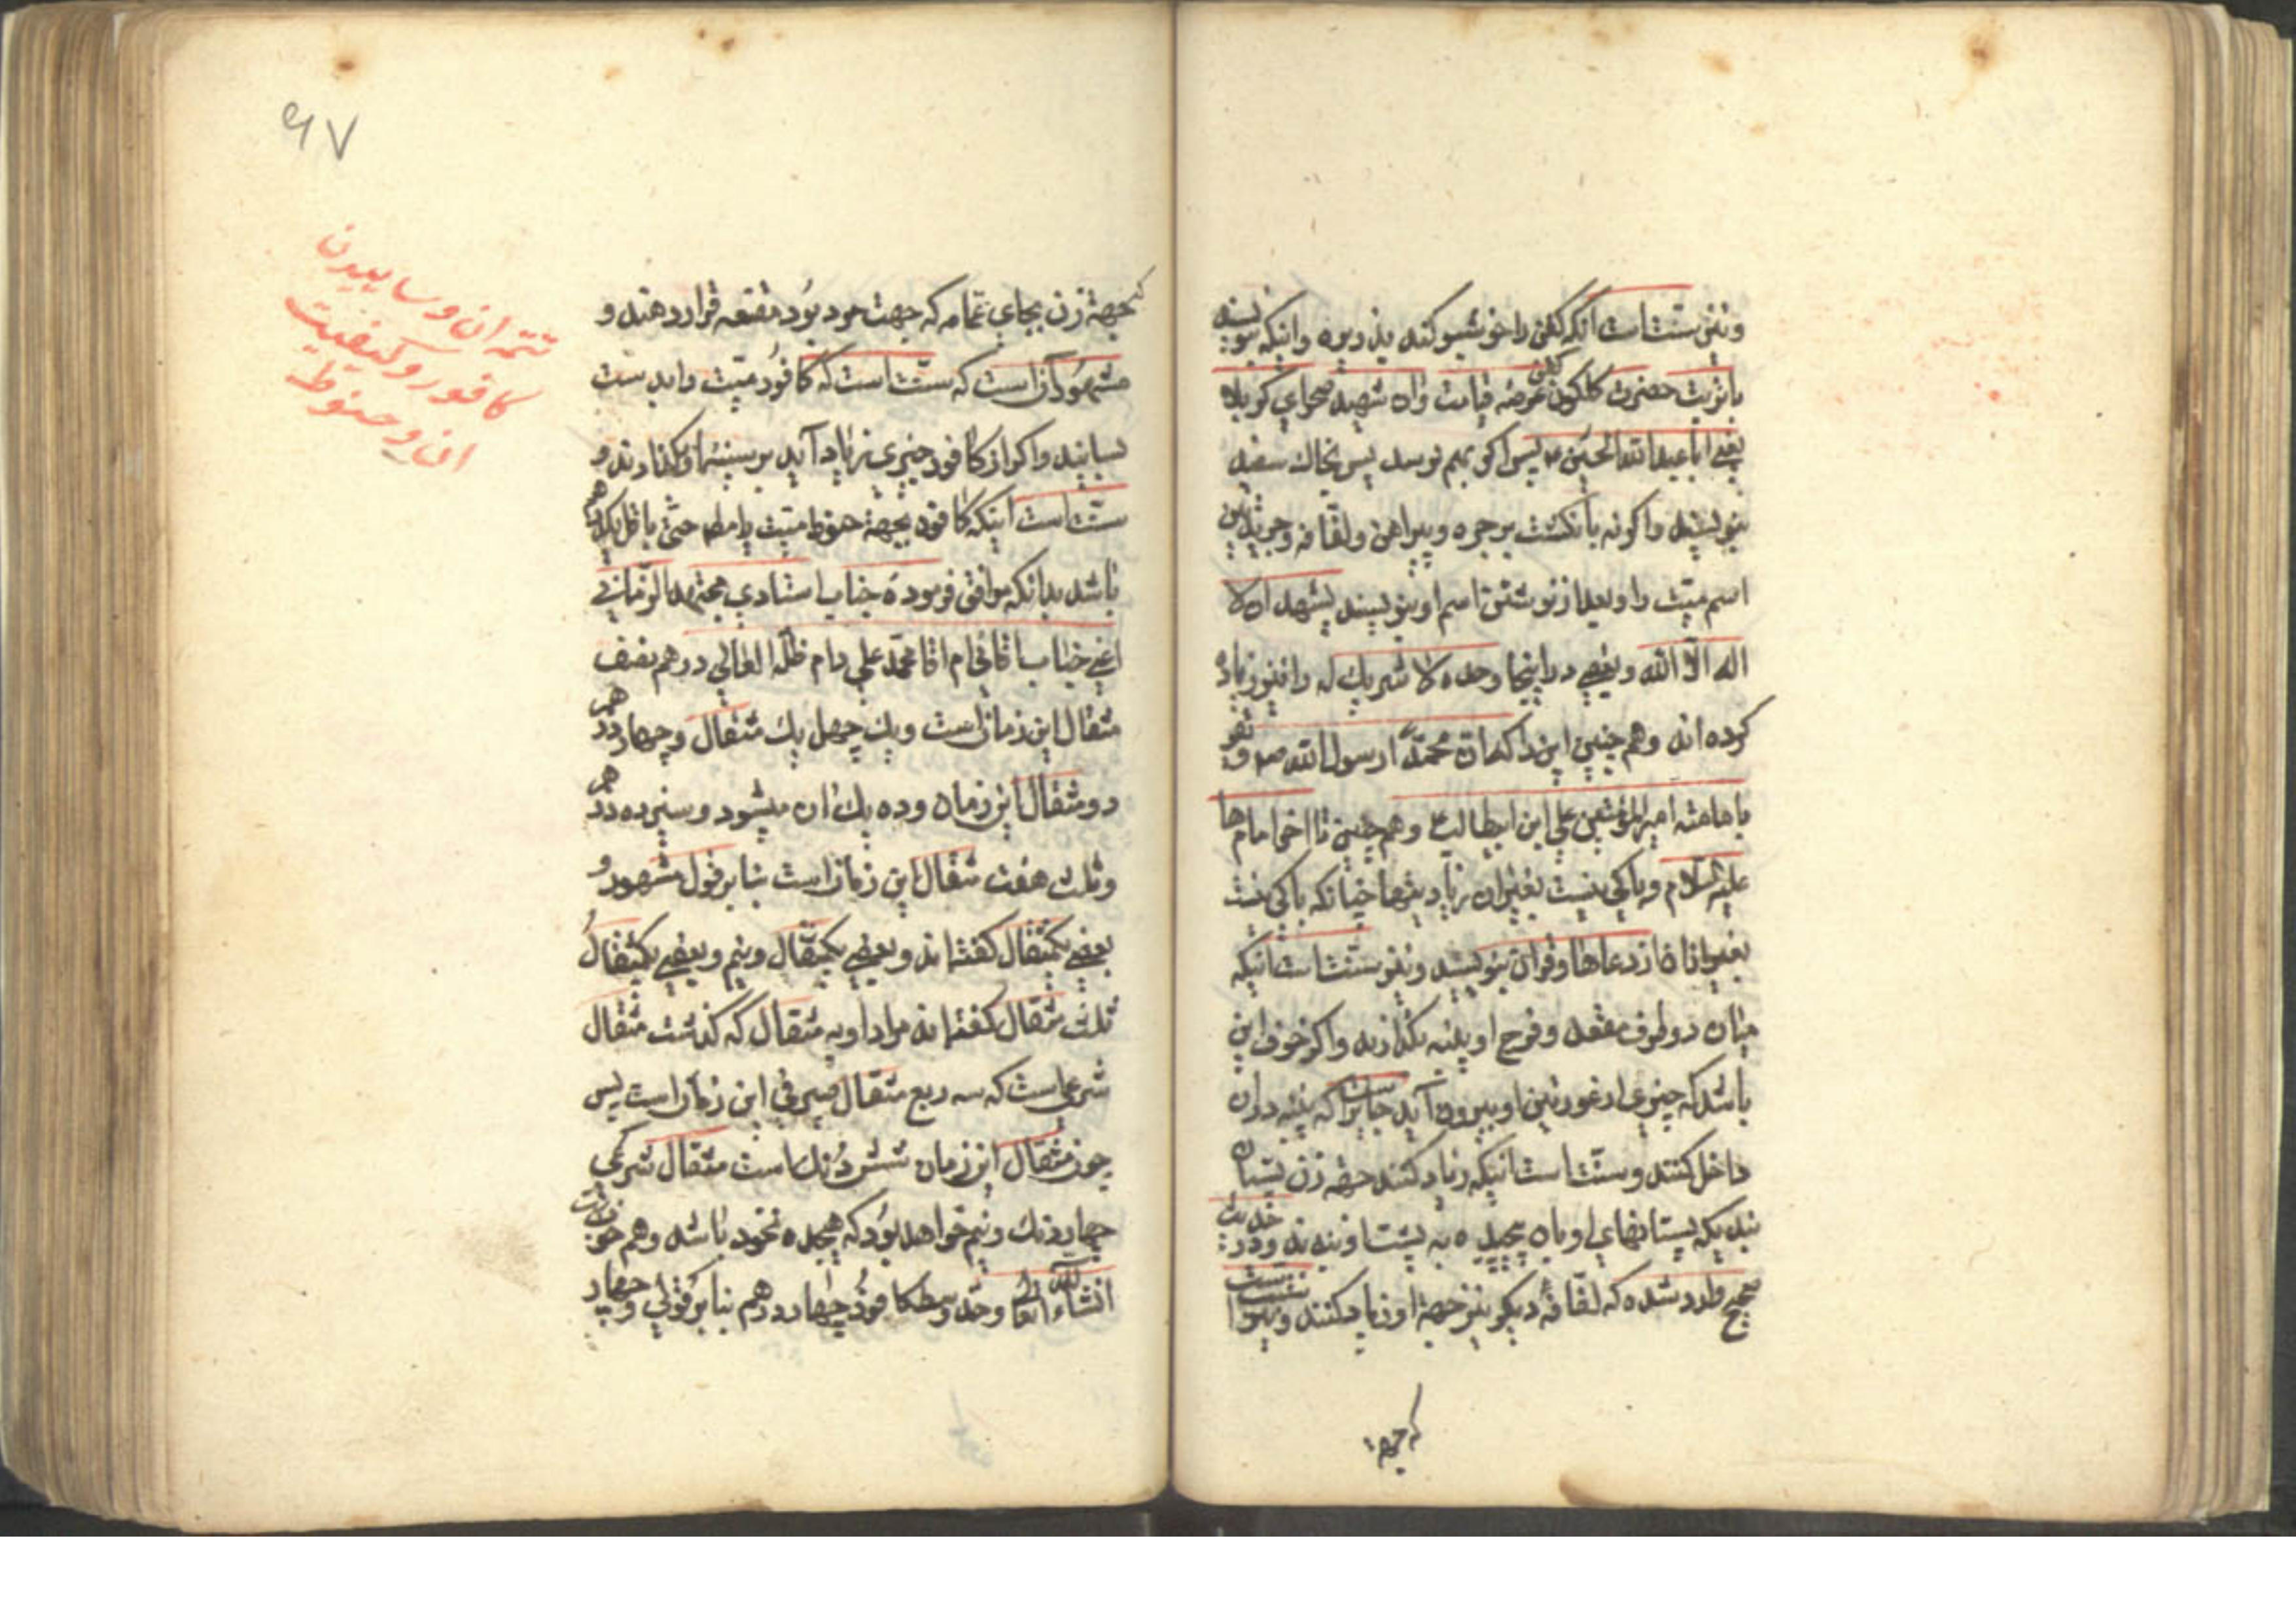 ونیز سنّت است آنکه کفن را خوشبو کنند بذریره واینکه بنویسند
بتربت حضرت گلگون کفن عرصه قیامت وان شهید صحرای کربلا
یعنی اباعبدالله الحسین ع پس اگر بهم نرسد پس بخاك سفید
بنویسند واگرنه بانگشت بر حبره وپیراهن ولفّافه وجریدتین
اسم میّت را وبعد از نوشتن اسم او بنویسند یشهد ان لا
اله الّا الله وبعضی در اینجا وحده لا شریك له را نیز زیاد
کرده اند وهم چنین این را که وانّ محمّداً رسول الله ص و نیز
بامامته امیرالمؤمنین علی ابن ابیطالب ع وهم چنین تا اخر امام ها
علیهم السّلام وباکی نیست بغیر ان زیاد نیزها چنانکه باکی نیست
بغیر از ان از دعاها وقران بنویسند ونیز سنّت است اینکه
میان دو طرف مقعد وفرج او پنبه بگذارند واگر خوف این
باشد که چیزی از غورتین او بیرون آید جایز است که پنبه در ان
داخل کنند وسنّت است اینکه زیاد کنند جهة زن پستان
بندیکه پستانهای او بان پیچیده به پشت او ببندند ودر حدیث
صحیح وارد شده که لفّافهٔ دیگر نیز جهة او زیاد کنند وبهتر است
که جهة
۹۷
تتمه ان وساییدن
کافور وکیفیت
ان وحنوط
که جهة زن بجای عمّامه که جهت مرد بود مقنعه قرار دهند و
مشهور آن است که سنّت است که کافور میّت را بدست
بسایند واگر از کافور چیزی زیاد آید بر سینهٔ او بگذارند و
سنّت است اینکه کافور بجهة حنوط میّت یا مطلق حتّی یا غسل یکدرهم
باشد بدانکه موافق فرمودهٔ جناب استادی مجتهد الزّمانی
اعنی جناب اقائی ام اقا محمّد علی دام ظلّه العالی درهم نصف
مثقال این زمان است ویك چهل یك مثقال وچهار درهم
دو مثقال این زمان وده یك ان میشود وسیزده درهم
وثلث هفت مثقال این زمان است بنابر قول مشهور و
بعضی یکمثقال گفته اند وبعضی یکمثقال ونیم وبعضی یکمثقال
ثلث مثقال گفته اند مراد او به مثقال که گذشت مثقال
شرعی است که سه ربع مثقال صیرفی این زمان است پس
چون مثقال این زمان شش دنك است مثقال شرعی
چهار دنك ونیم خواهد بود که هیجده نخود باشد وهم خوب است
انشاء الله تعالی وحدّ وسط کافور چهار درهم بنابر قولی وچهار